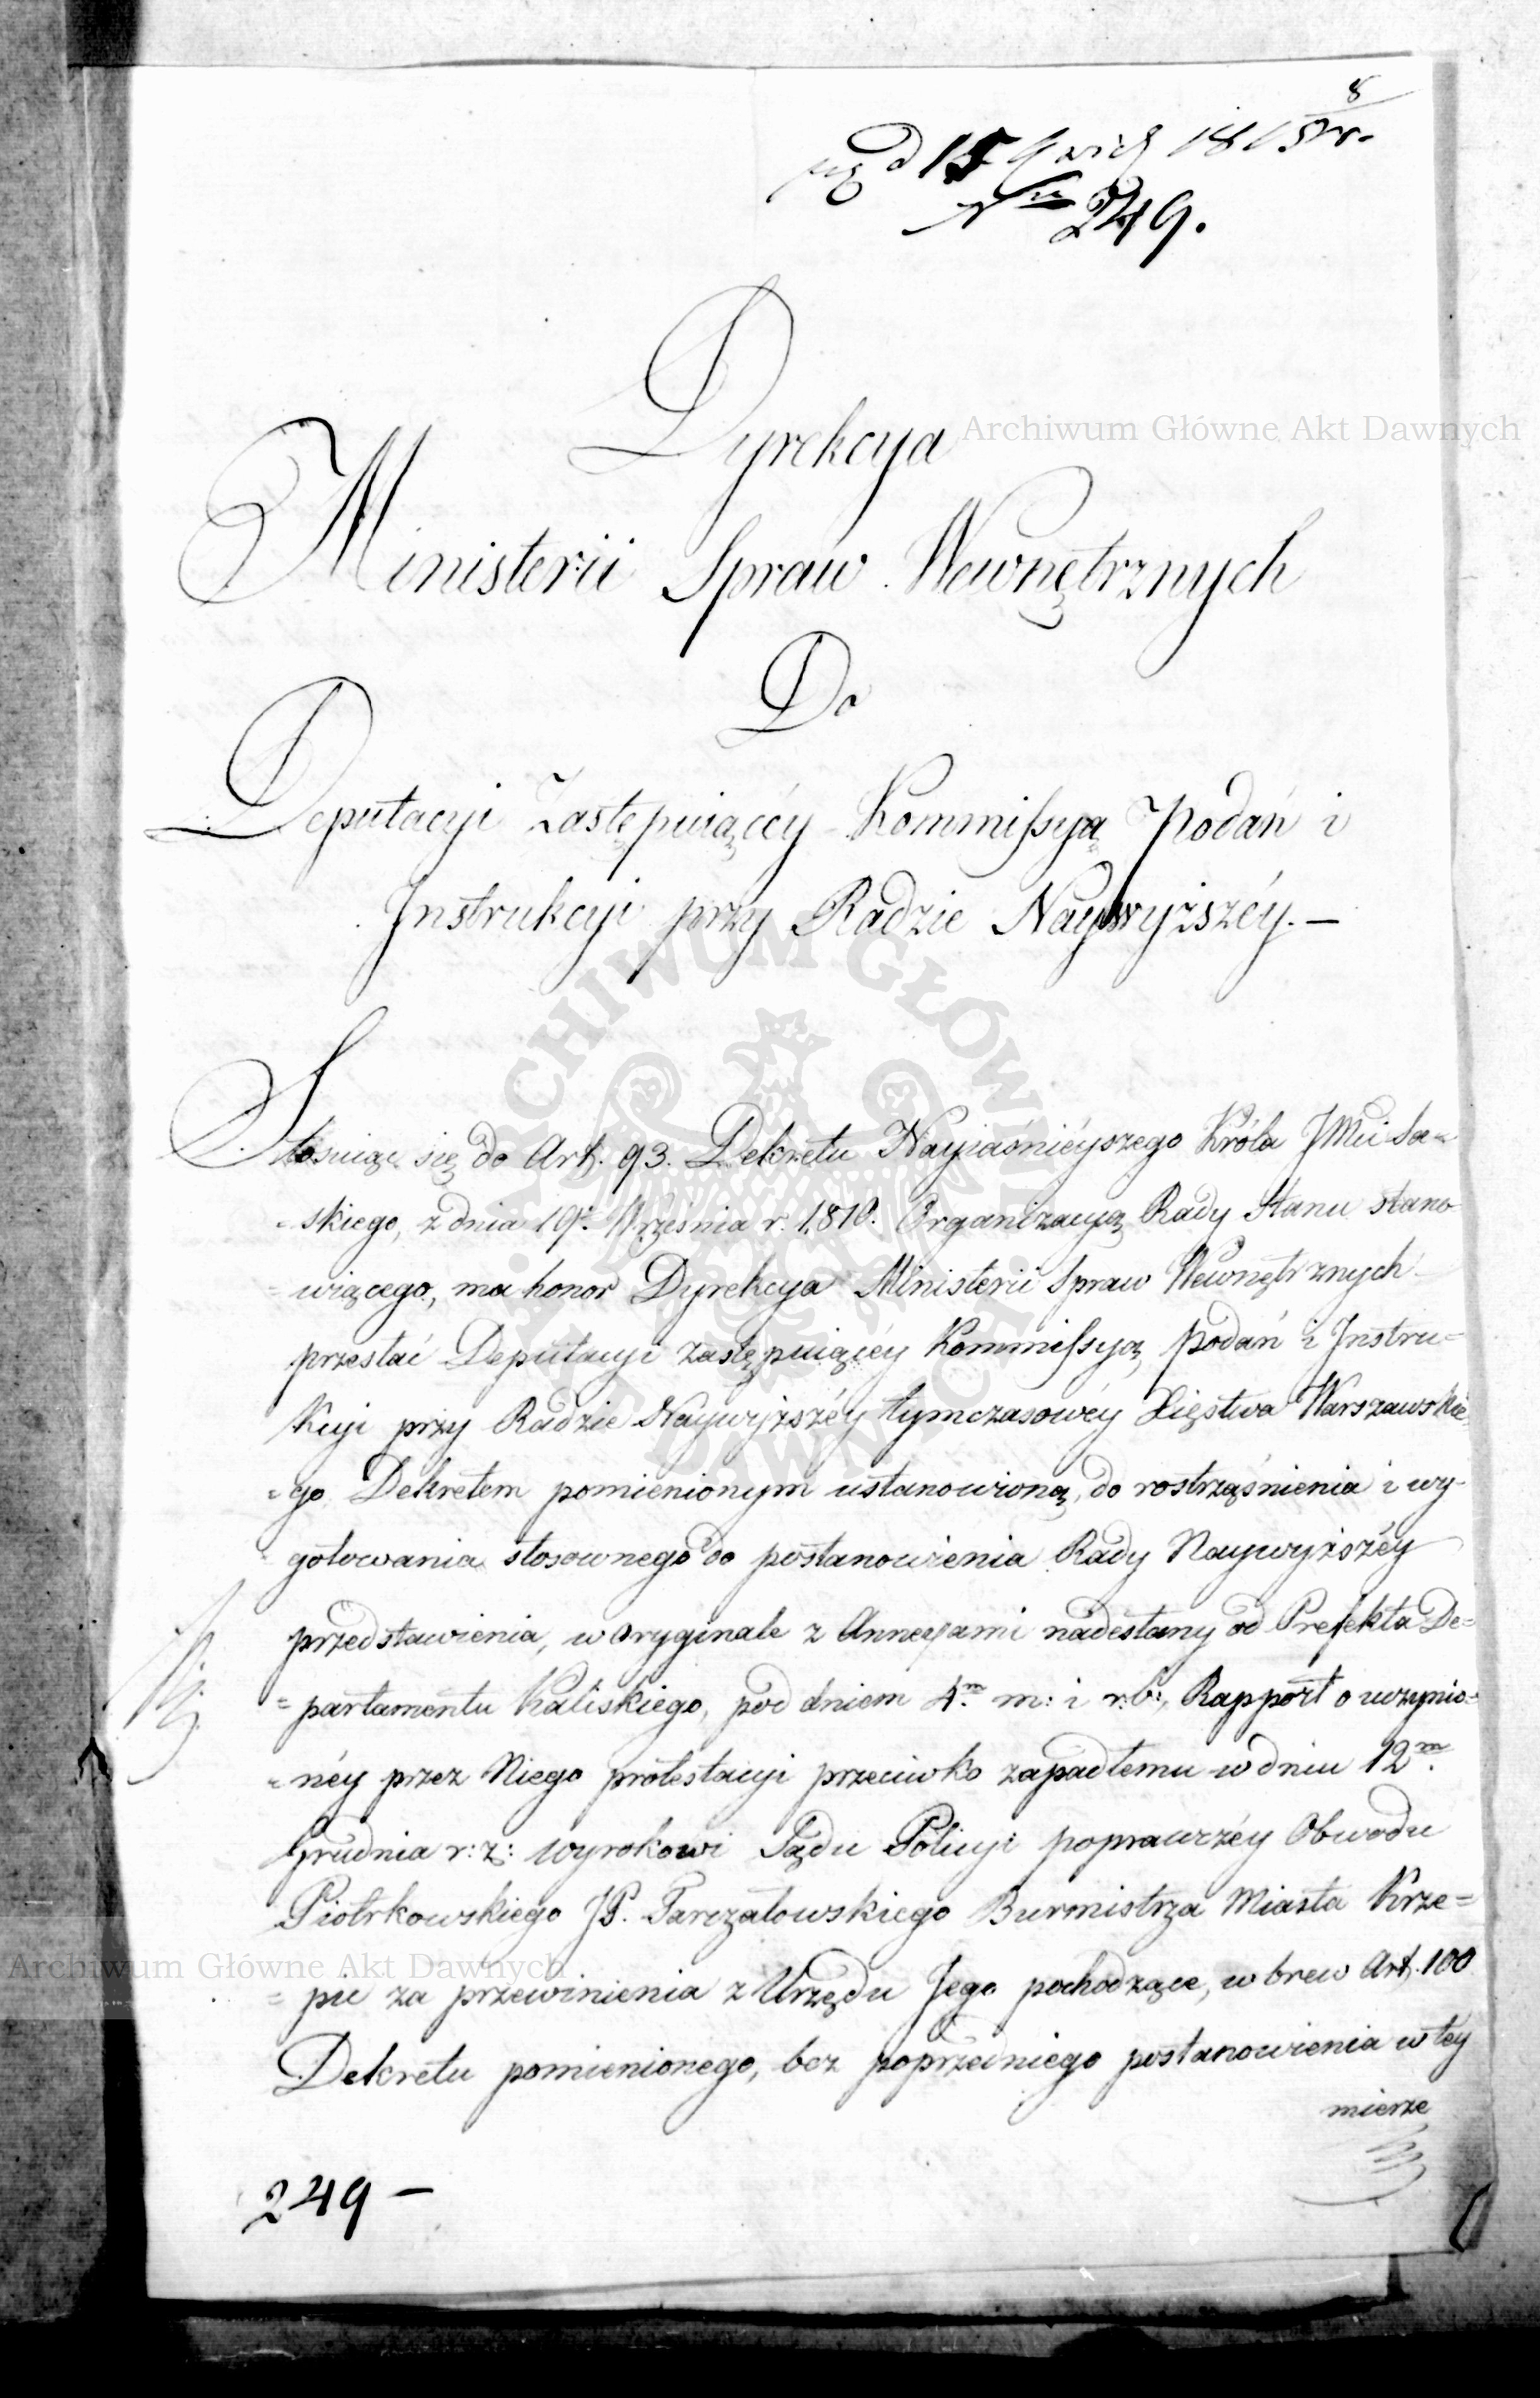 8
d 15 1815 r.
N 249.
Dyrekcya
Archiwum Główne Akt Dawnych
Ministerii Spraw Wewnętrznych
Do
Deputacyi Zastępuiącéy Kommissyą Podań i
Instrukcyi przy Radzie Naywyższéy.—
ARCHIWUM GŁÓWNE AKT DAWNYCH
Stosuiąc się do Art. 93. Dekretu Nayiaśnieyszego Króla JMci Sa=
=skiego, z dnia 19. Września r. 1810. Organizacyą Rady Stanu stano
=wiącego, ma honor Dyrekcya Ministerii Spraw Wewnętrznych
przesłać Deputacyi zastępuiącéy Kommissyą Podań i Instru=
kcyi przy Radzie Naywyższéy tymczasowéy Xięstwa Warszawskie
=go Dekretem pomienionym ustanowioną, do rostrząśnienia i wy-
gotowania stosownego do postanowienia Rady Naywyższéy
przedstawienia, w oryginale z Annexami nadesłany od Prefekta De=
=partamentu Kaliskiego, pod dniem 4.m m: i r:b:, Rapport o uczynio=
=néy przez Niego protestacyi przeciwko zapadłemu w dniu 12m.
Grudnia r: z: wyrokowi Sądu Policyi poprawczéy Obwodu
Piotrkowskiego JP. Parczałowskiego Burmistrza Miasta Krze=
Archiwum Główne Akt Dawnych
=pic za przewinienia z Urzędu Jego pochodzące, w brew Art. 100
Dekretu pomienionego, bez poprzedniego postanowienia w tey
mierze
249 —